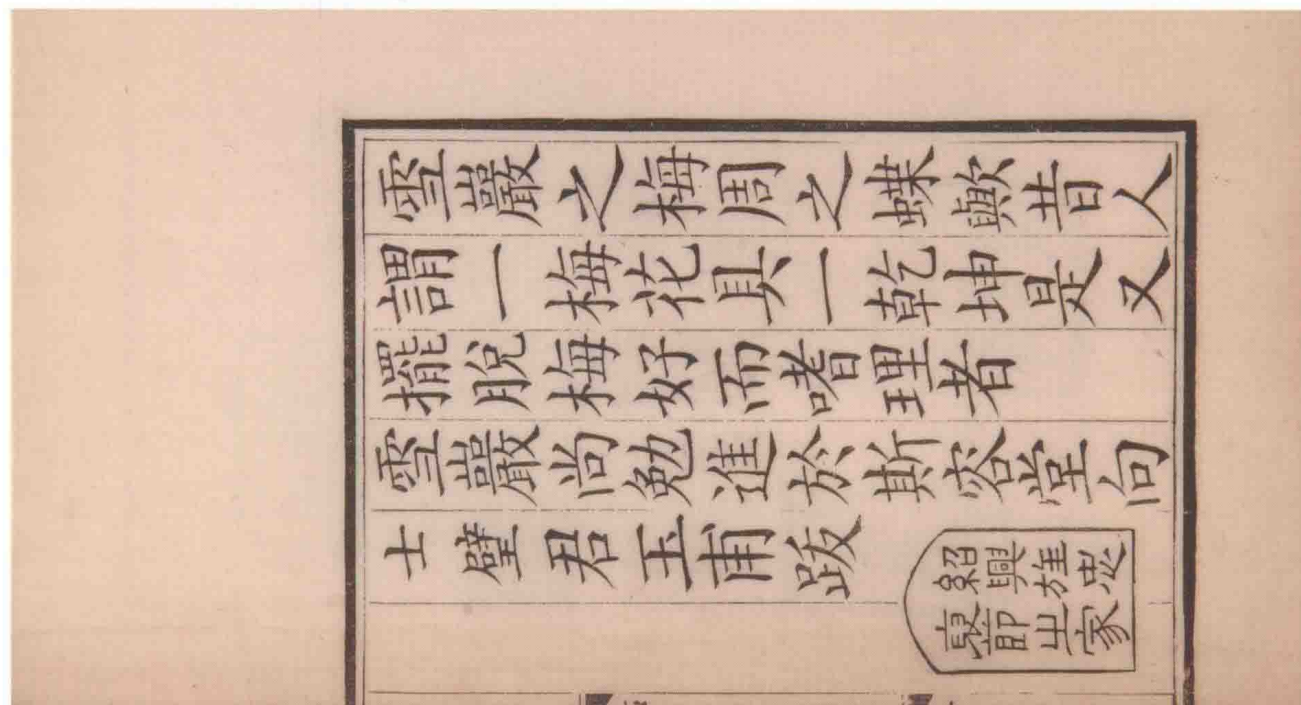 雪巖之梅周之蝶歟昔人
謂一梅花具一乾坤是又
擺脫梅好而嗜理者
雪巖尚勉進於斯容堂向
士璧君玉甫跋
紹興旌忠
褒節之家